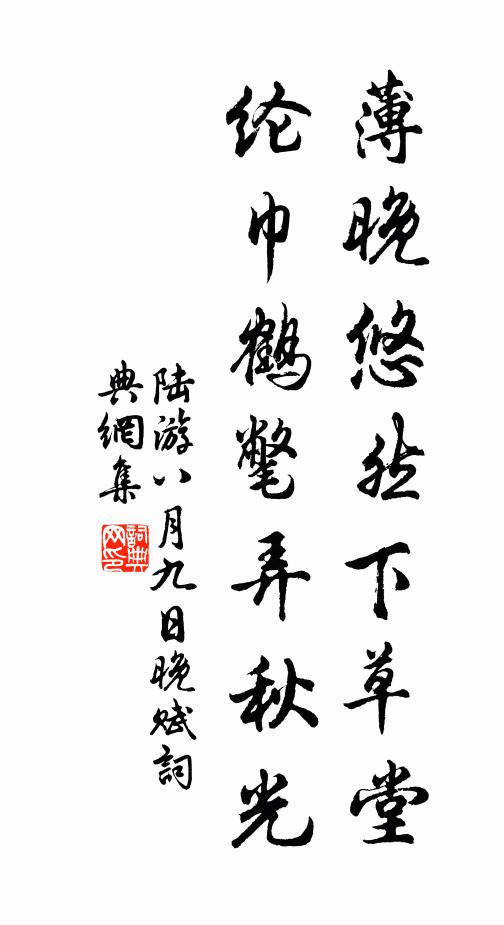 薄晚悠然下草堂
纶巾鹤氅弄秋光
陆游八月九日晚赋詞
典網集
詞典网印